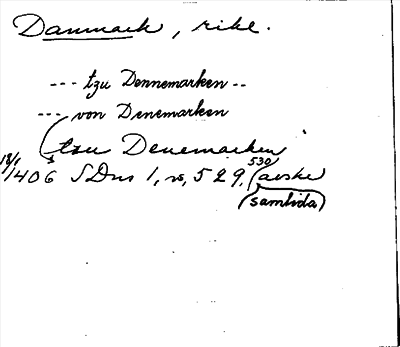 Danmark, rike.
--- tzu Dennemarken --
--- von Denemarken
tzu Denemarken
18/1 1406 SDns 1, s, 529, 530 (avskr
(samtida)